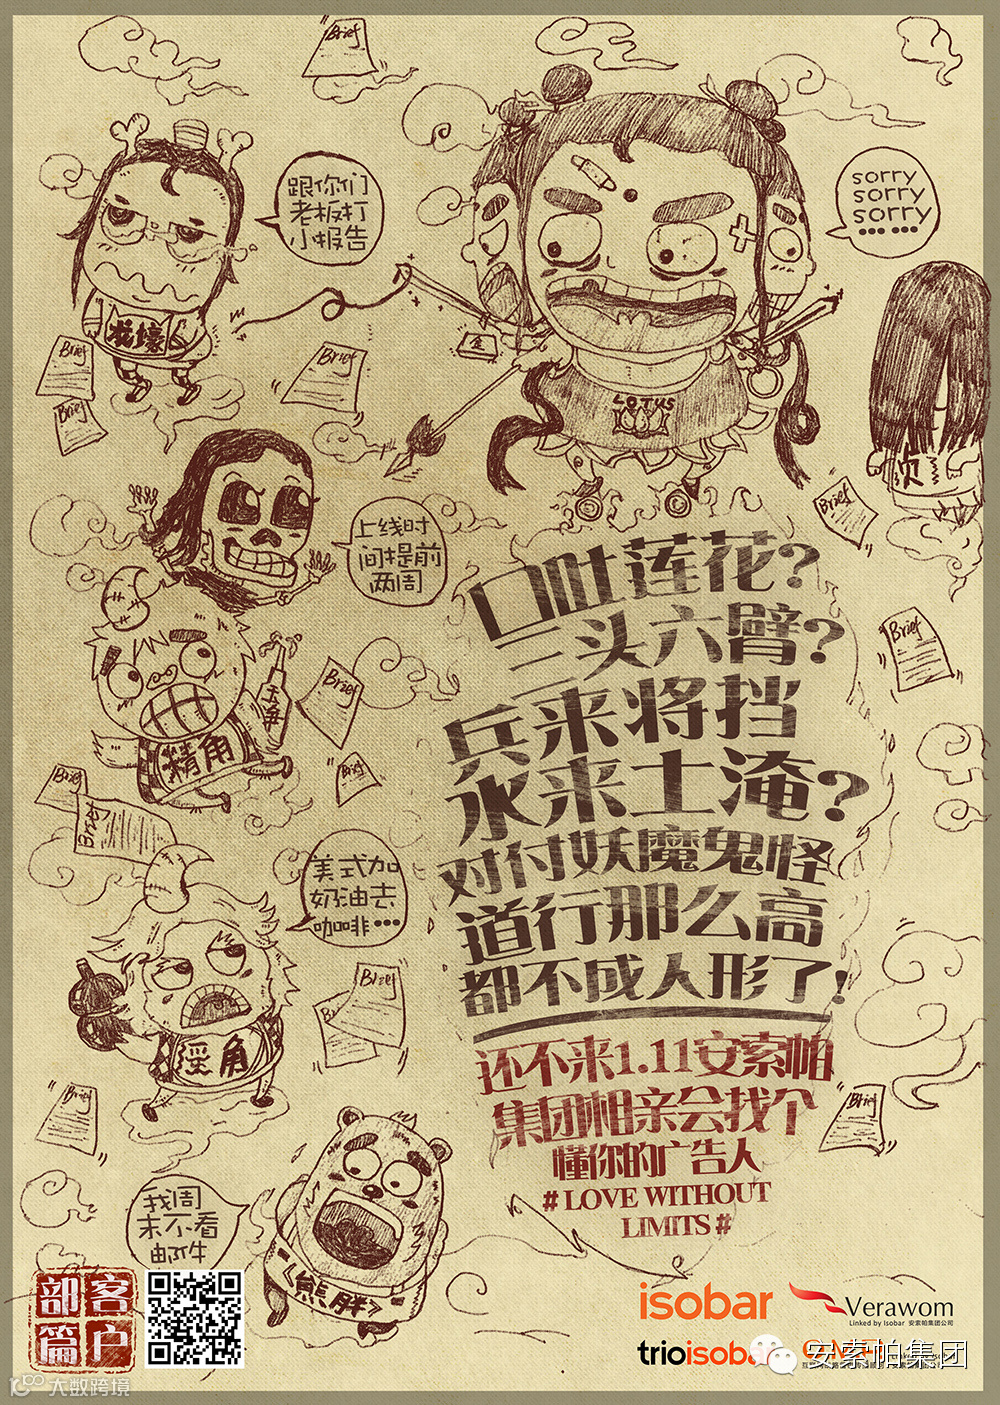 Brief
跟你们
老板打
小报告
sorry
sorry
sorry
••• •••
Brief
Brief
Brief
LOTUS
贞
Brief
上线时
间提前
两周
口吐莲花?
三头六臂?
兵来将挡
水来土淹?
对付妖魔鬼怪
道行那么高
都不成人形了!
Brief
Brief
精角
Brief
Brief
Brief
美式加
奶油去
咖啡•••
Brief
淫角
Brief
还不来1.11安索帕
集团相亲会找个
懂你的广告人
# LOVE WITHOUT
LIMITS #
Brief
我周
末不看
邮件
《熊胖》
客户
部篇
isobar
Verawom
Linked by Isobar 安索帕集团公司
trioisobar
安索帕集团
大数跨境